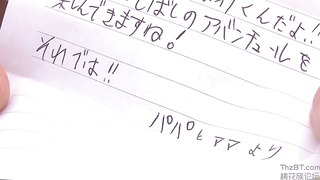 くんだよ!!
しばしのアバンチュールを
楽しんできますね!
それでは!!
パパとママより
ThzBT.com
桃花族论坛